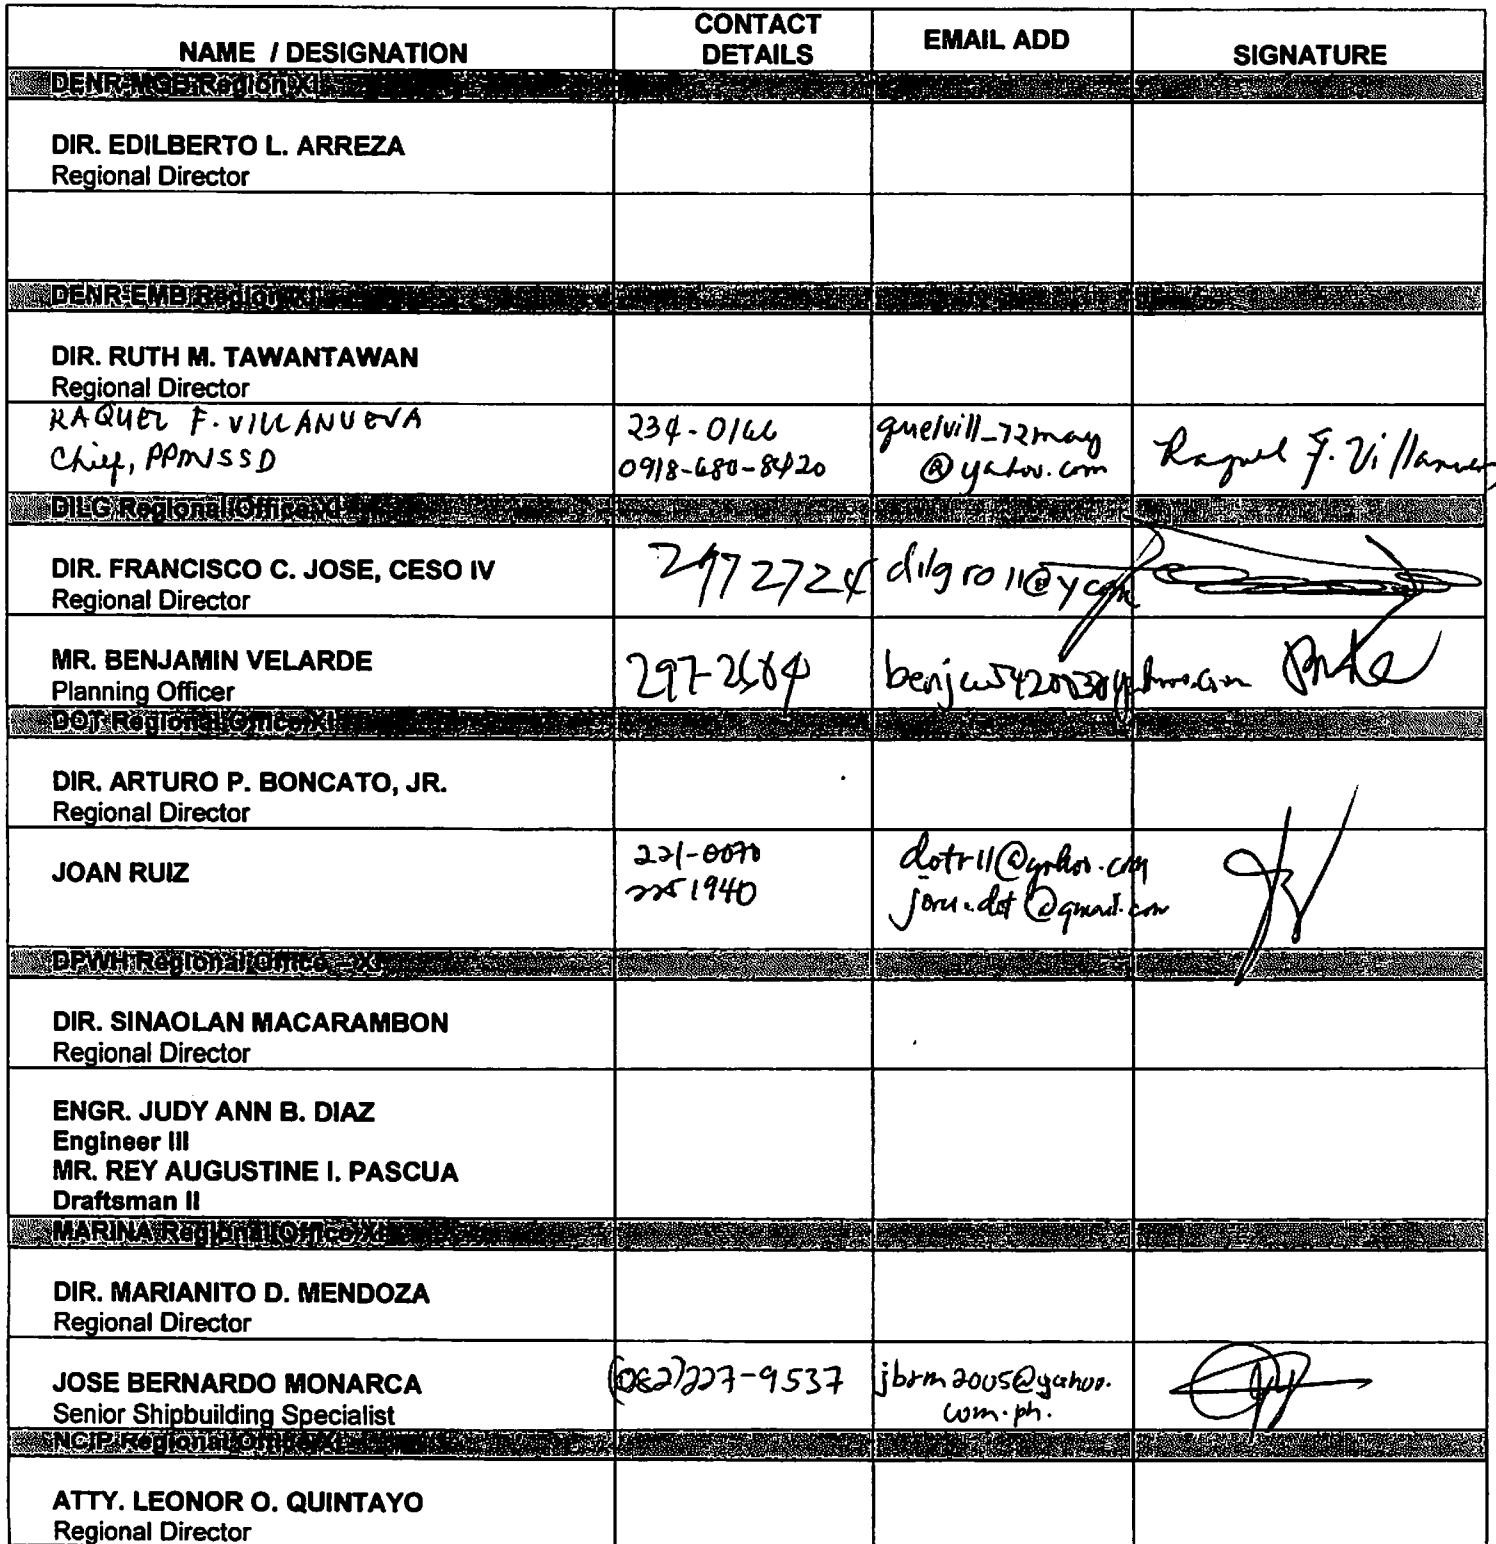 NAME / DESIGNATION
CONTACT
DETAILS
EMAIL ADD
SIGNATURE
DENR-MGB Region XI
DIR. EDILBERTO L. ARREZA
Regional Director
DENR-EMB Region XI
DIR. RUTH M. TAWANTAWAN
Regional Director
RAQUEL F. VILLANUEVA
Chief,
234-0166
0918-680-8420
quelvill_72may
@yahoo.com
Raquel F. Villanueva
DILG Regional Office XI
DIR. FRANCISCO C. JOSE, CESO IV
Regional Director
2972724
MR. BENJAMIN VELARDE
Planning Officer
DOT Regional Office XI
DIR. ARTURO P. BONCATO, JR.
Regional Director
JOAN RUIZ
221-0070
225 1940
dotr11@yahoo.com
DPWH Regional Office - XI
DIR. SINAOLAN MACARAMBON
Regional Director
ENGR. JUDY ANN B. DIAZ
Engineer III
MR. REY AUGUSTINE I. PASCUA
Draftsman II
MARINA Regional Office XI
DIR. MARIANITO D. MENDOZA
Regional Director
JOSE BERNARDO MONARCA
Senior Shipbuilding Specialist
(082)227-9537
jbrm2005@yahoo.
com.ph.
NCIP Regional Office XI
ATTY. LEONOR O. QUINTAYO
Regional Director